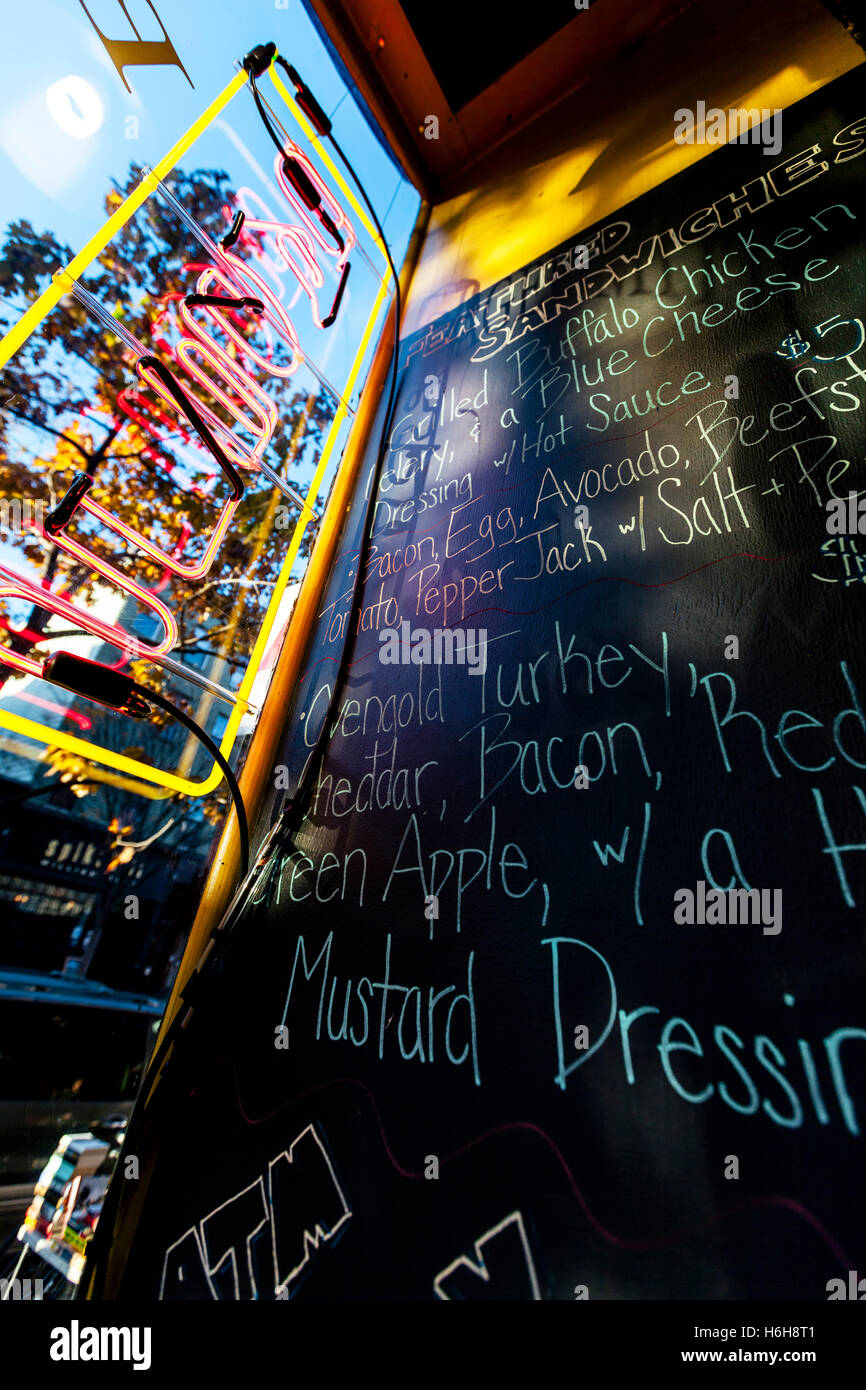 FEATURED
SANDWICHES
Grilled Buffalo Chicken
Celery, & a Blue Cheese
Dressing w/ Hot Sauce $5
Bacon, Egg, Avocado, Beefst
Tomato, Pepper Jack w/ Salt + Pe
$
Ovengold Turkey,
Cheddar, Bacon, Red
Green Apple, w/ a H
Mustard Dressin
ATM
alamy
Image ID: H6H8T1
www.alamy.com